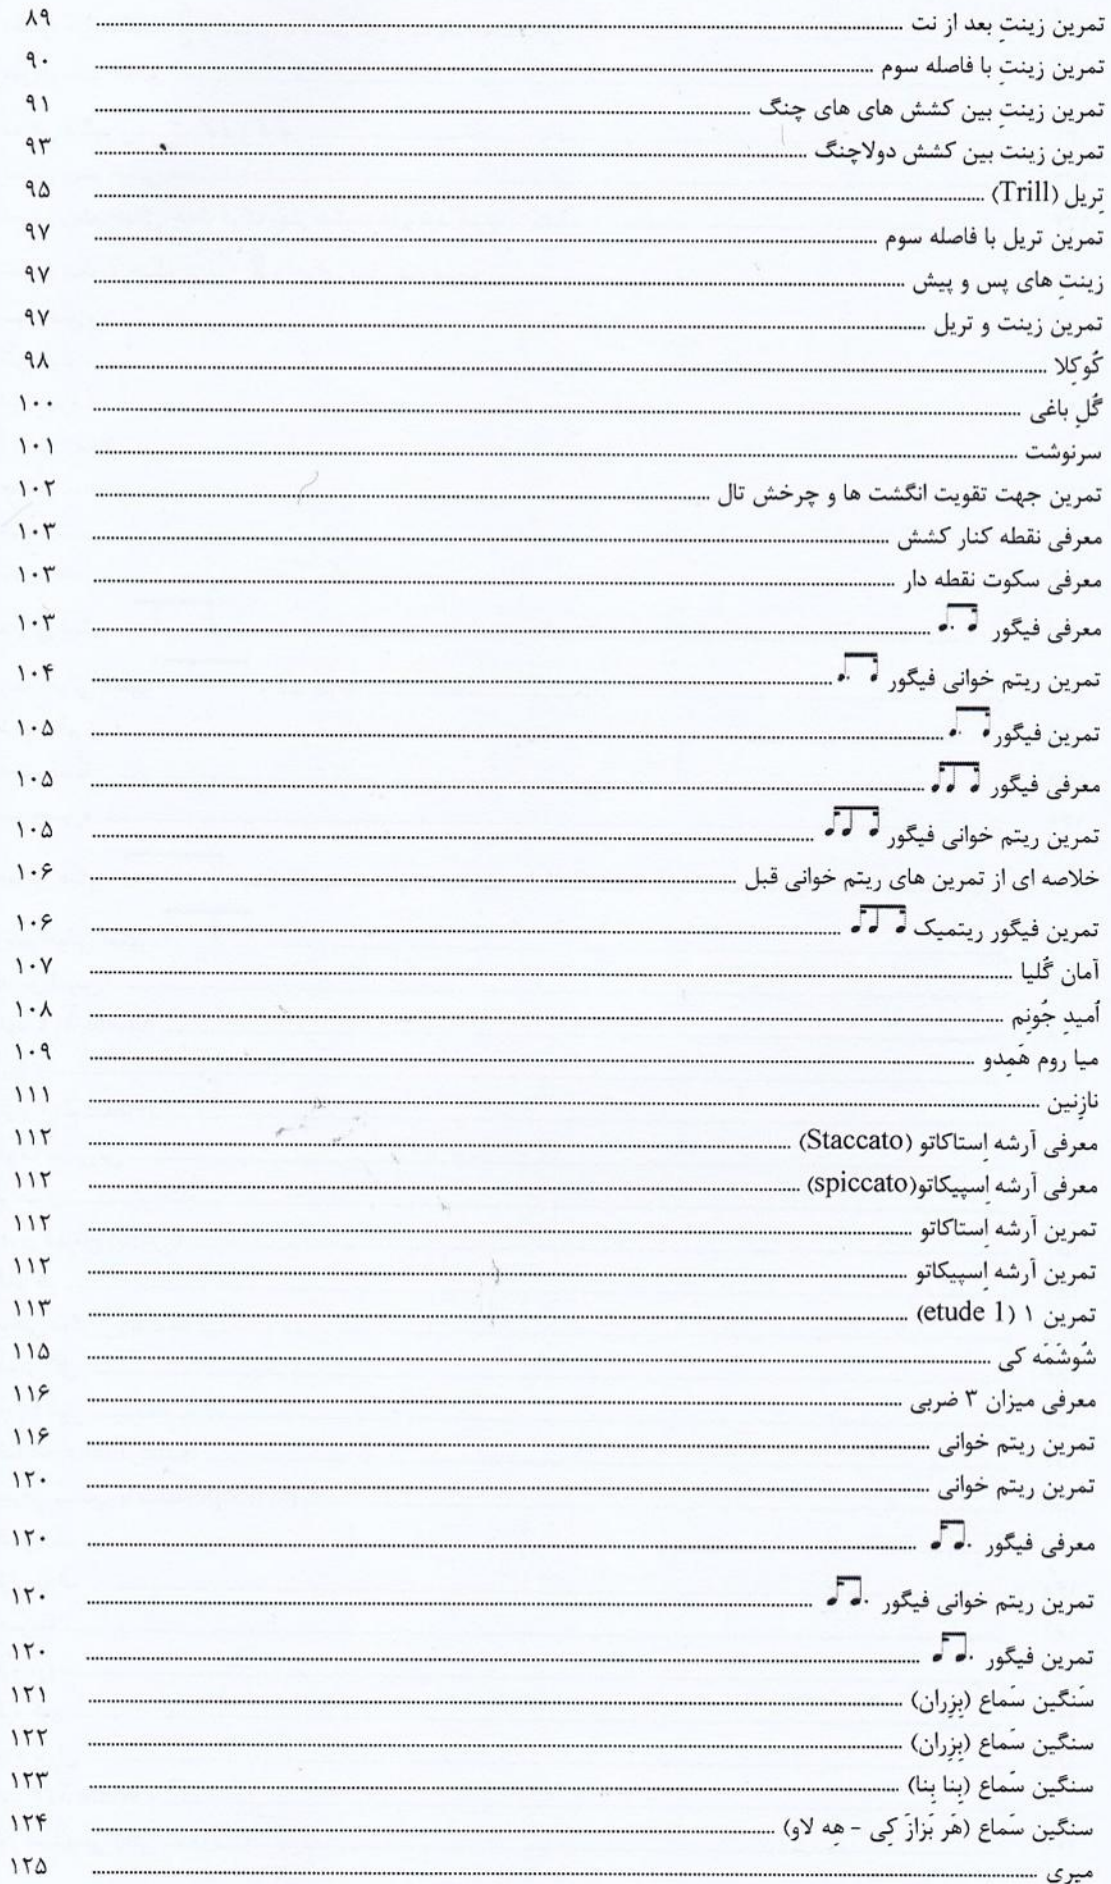 تمرین زینتِ بعد از نت ........ ۸۹
تمرین زینتِ با فاصله سوم ........ ۹۰
تمرین زینتِ بین کشش های های چنگ ........ ۹۱
تمرین زینت بین کشش دولاچنگ ........ ۹۳
تِریل (Trill) ........ ۹۵
تمرین تریل با فاصله سوم ........ ۹۷
زینتِ های پس و پیش ........ ۹۷
تمرین زینت و تریل ........ ۹۷
کُوکِلا ........ ۹۸
گُلِ باغی ........ ۱۰۰
سرنوشت ........ ۱۰۱
تمرین جهت تقویت انگشت ها و چرخش تال ........ ۱۰۲
معرفی نقطه کنار کشش ........ ۱۰۳
معرفی سکوت نقطه دار ........ ۱۰۳
معرفی فیگور ........ ۱۰۳
تمرین ریتم خوانی فیگور ........ ۱۰۴
تمرین فیگور ........ ۱۰۵
معرفی فیگور ........ ۱۰۵
تمرین ریتم خوانی فیگور ........ ۱۰۵
خلاصه ای از تمرین های ریتم خوانی قبل ........ ۱۰۶
تمرین فیگور ریتمیک ........ ۱۰۶
آمان گُلیا ........ ۱۰۷
اُمیدِ جُونِم ........ ۱۰۸
میا روم هَمِدو ........ ۱۰۹
نازِنین ........ ۱۱۱
معرفی آرشه اِستاکاتو (Staccato) ........ ۱۱۲
معرفی آرشه اِسپیکاتو(spiccato) ........ ۱۱۲
تمرین آرشه اِستاکاتو ........ ۱۱۲
تمرین آرشه اِسپیکاتو ........ ۱۱۲
تمرین ۱ (etude 1) ........ ۱۱۳
شُوشَمَه کی ........ ۱۱۵
معرفی میزان ۳ ضربی ........ ۱۱۶
تمرین ریتم خوانی ........ ۱۱۶
تمرین ریتم خوانی ........ ۱۲۰
معرفی فیگور ........ ۱۲۰
تمرین ریتم خوانی فیگور ........ ۱۲۰
تمرین فیگور ........ ۱۲۰
سَنگین سَماع (بِزِران) ........ ۱۲۱
سنگین سَماع (بِزِران) ........ ۱۲۲
سنگین سَماع (بِنا بِنا) ........ ۱۲۳
سنگین سَماع (هَر بَزازَ کِی - هِه لاو) ........ ۱۲۴
میری ........ ۱۲۵